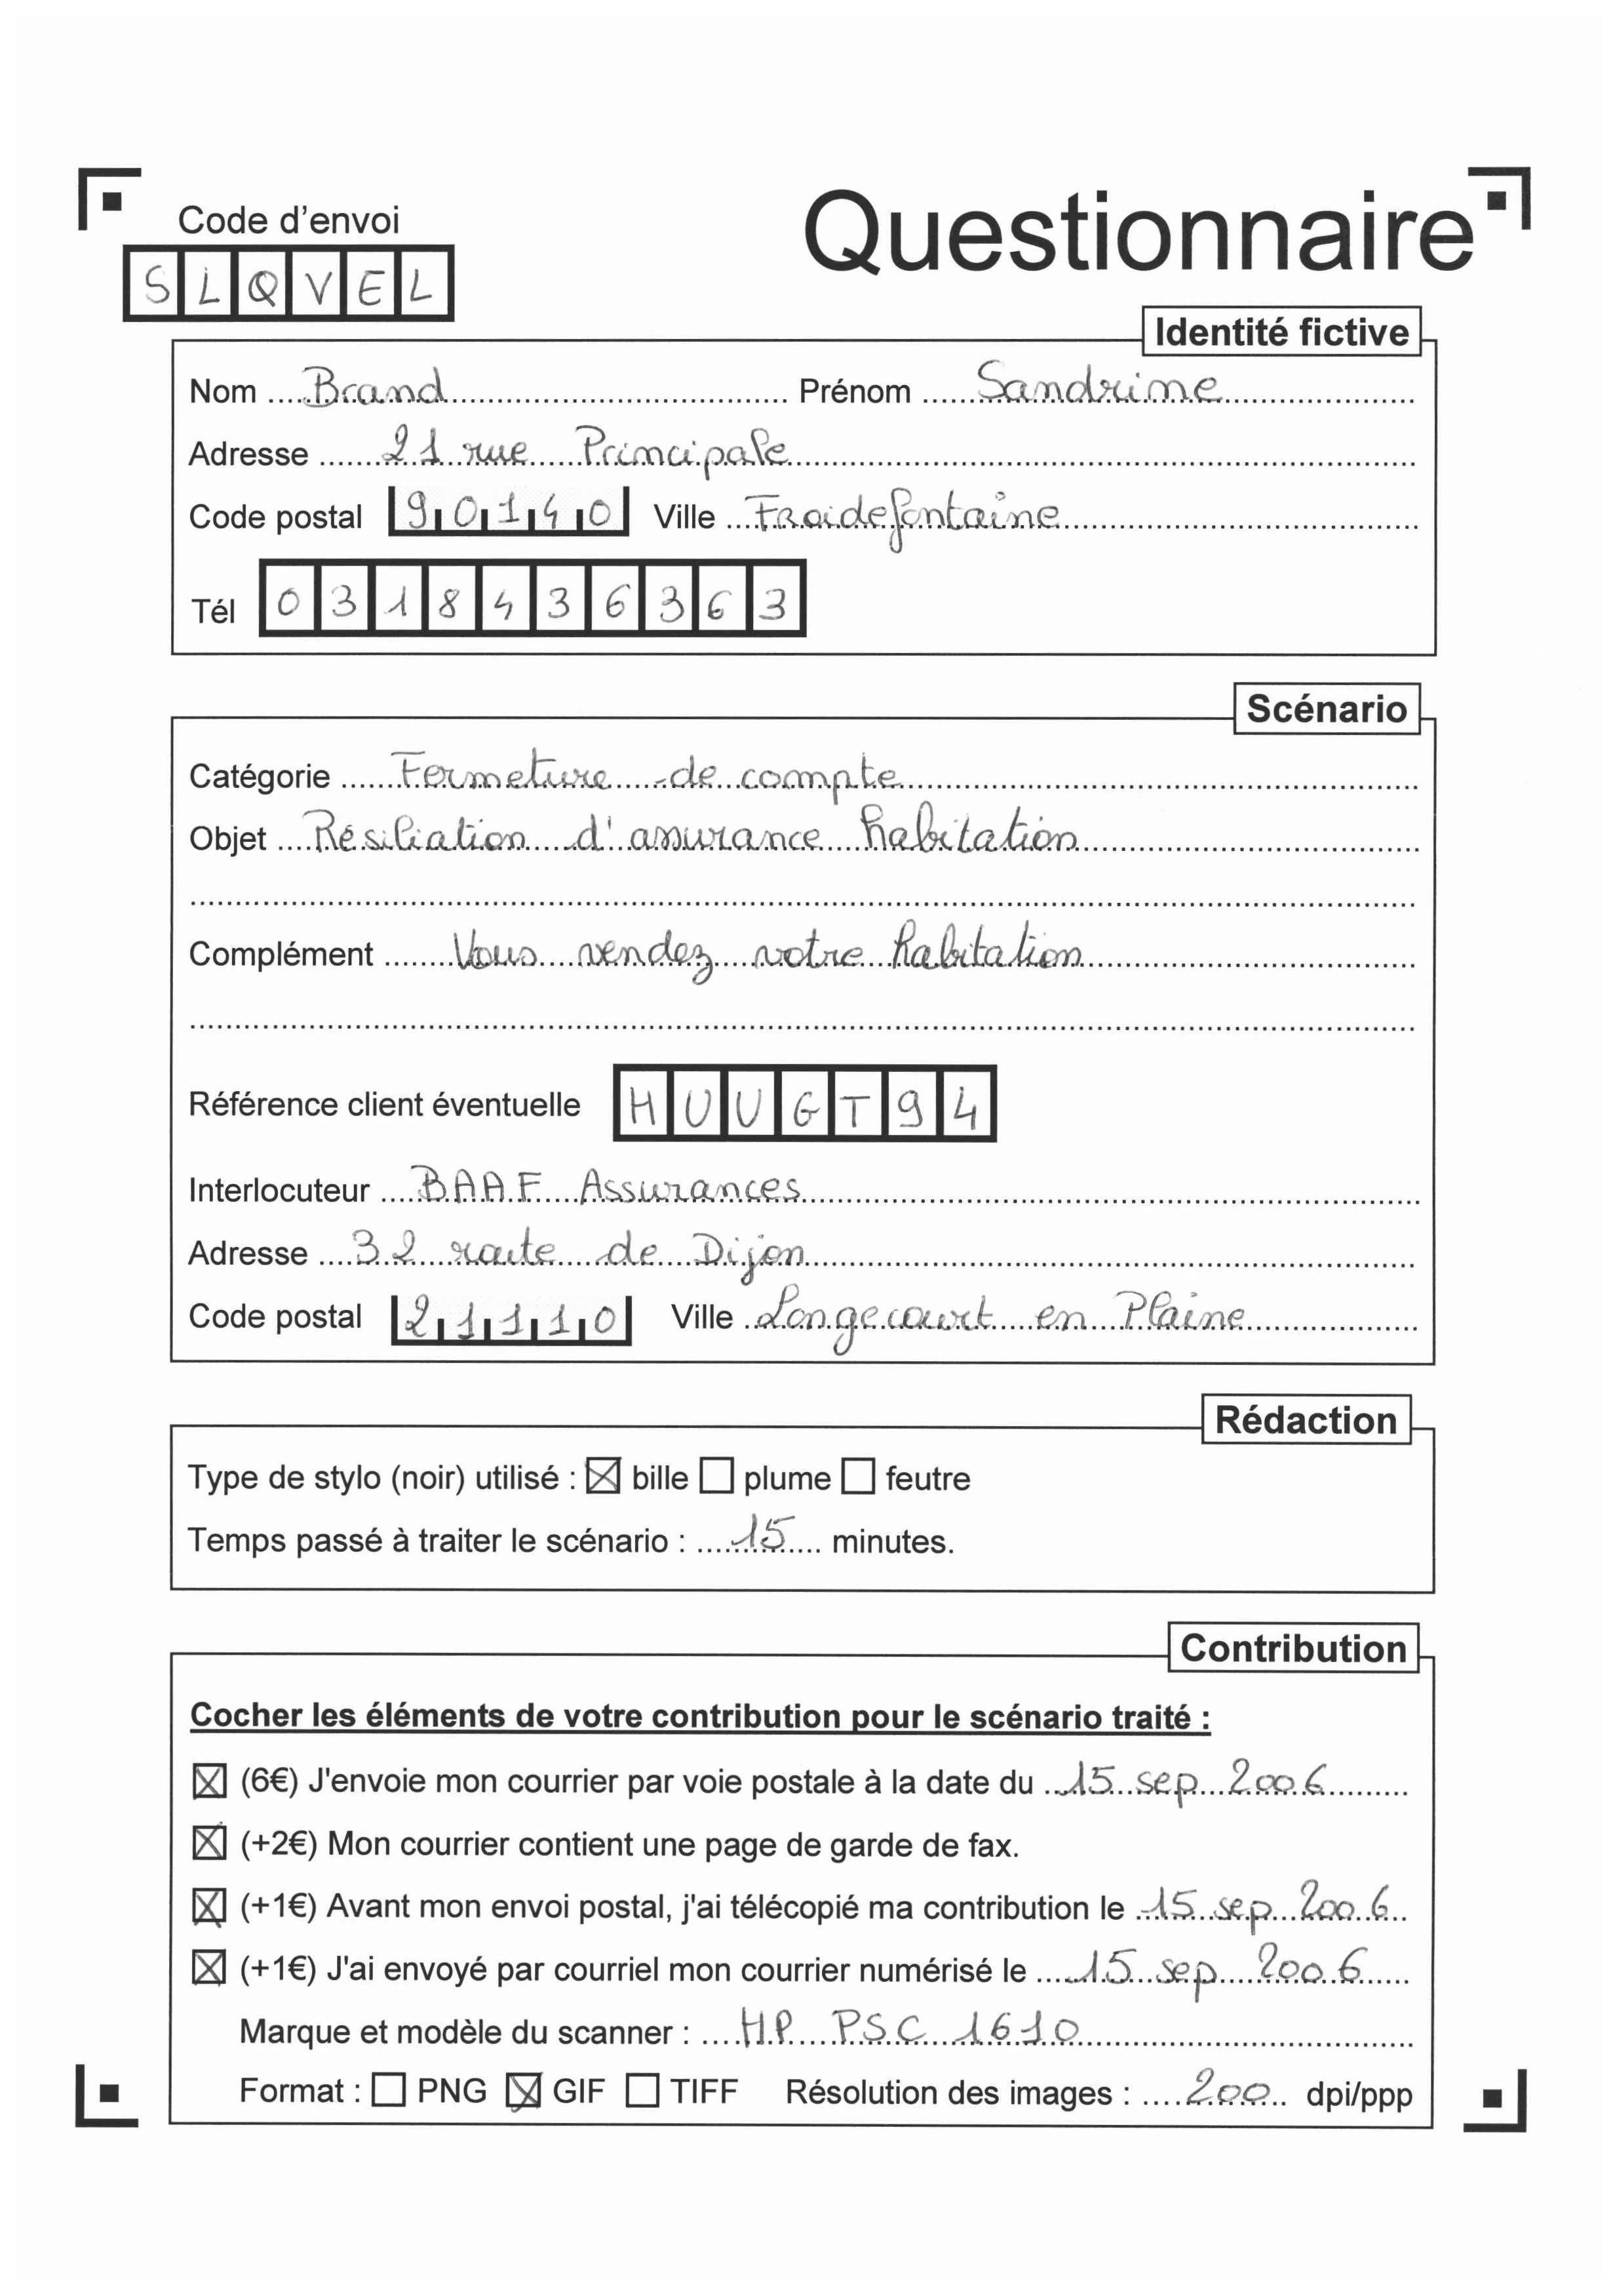 Code d'envoi
Questionnaire
SLQVEL
Identité fictive
Nom Brand Prénom Sandrine
Adresse 21 rue Principale
Code postal 90140 Ville Froidefontaine
Tél 0318436363
Scénario
Catégorie Fermeture de compte
Objet Résiliation d'assurance habitation
Complément Vous vendez votre habitation
Référence client éventuelle HUUGT94
Interlocuteur BAAF Assurances
Adresse 32 route de Dijon
Code postal 21110 Ville Longecourt en Plaine
Rédaction
Type de stylo (noir) utilisé : ☒ bille ☐ plume ☐ feutre
Temps passé à traiter le scénario : 15 minutes.
Contribution
Cocher les éléments de votre contribution pour le scénario traité :
☒ (6€) J'envoie mon courrier par voie postale à la date du 15 sep 2006
☒ (+2€) Mon courrier contient une page de garde de fax.
☒ (+1€) Avant mon envoi postal, j'ai télécopié ma contribution le 15 sep 2006
☒ (+1€) J'ai envoyé par courriel mon courrier numérisé le 15 sep 2006
Marque et modèle du scanner : HP PSC 1610
Format : ☐ PNG ☒ GIF ☐ TIFF Résolution des images : 200 dpi/ppp